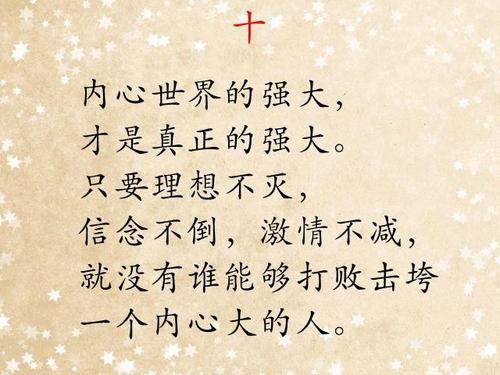 十
内心世界的强大，
才是真正的强大。
只要理想不灭，
信念不倒，激情不减，
就没有谁能够打败击垮
一个内心大的人。